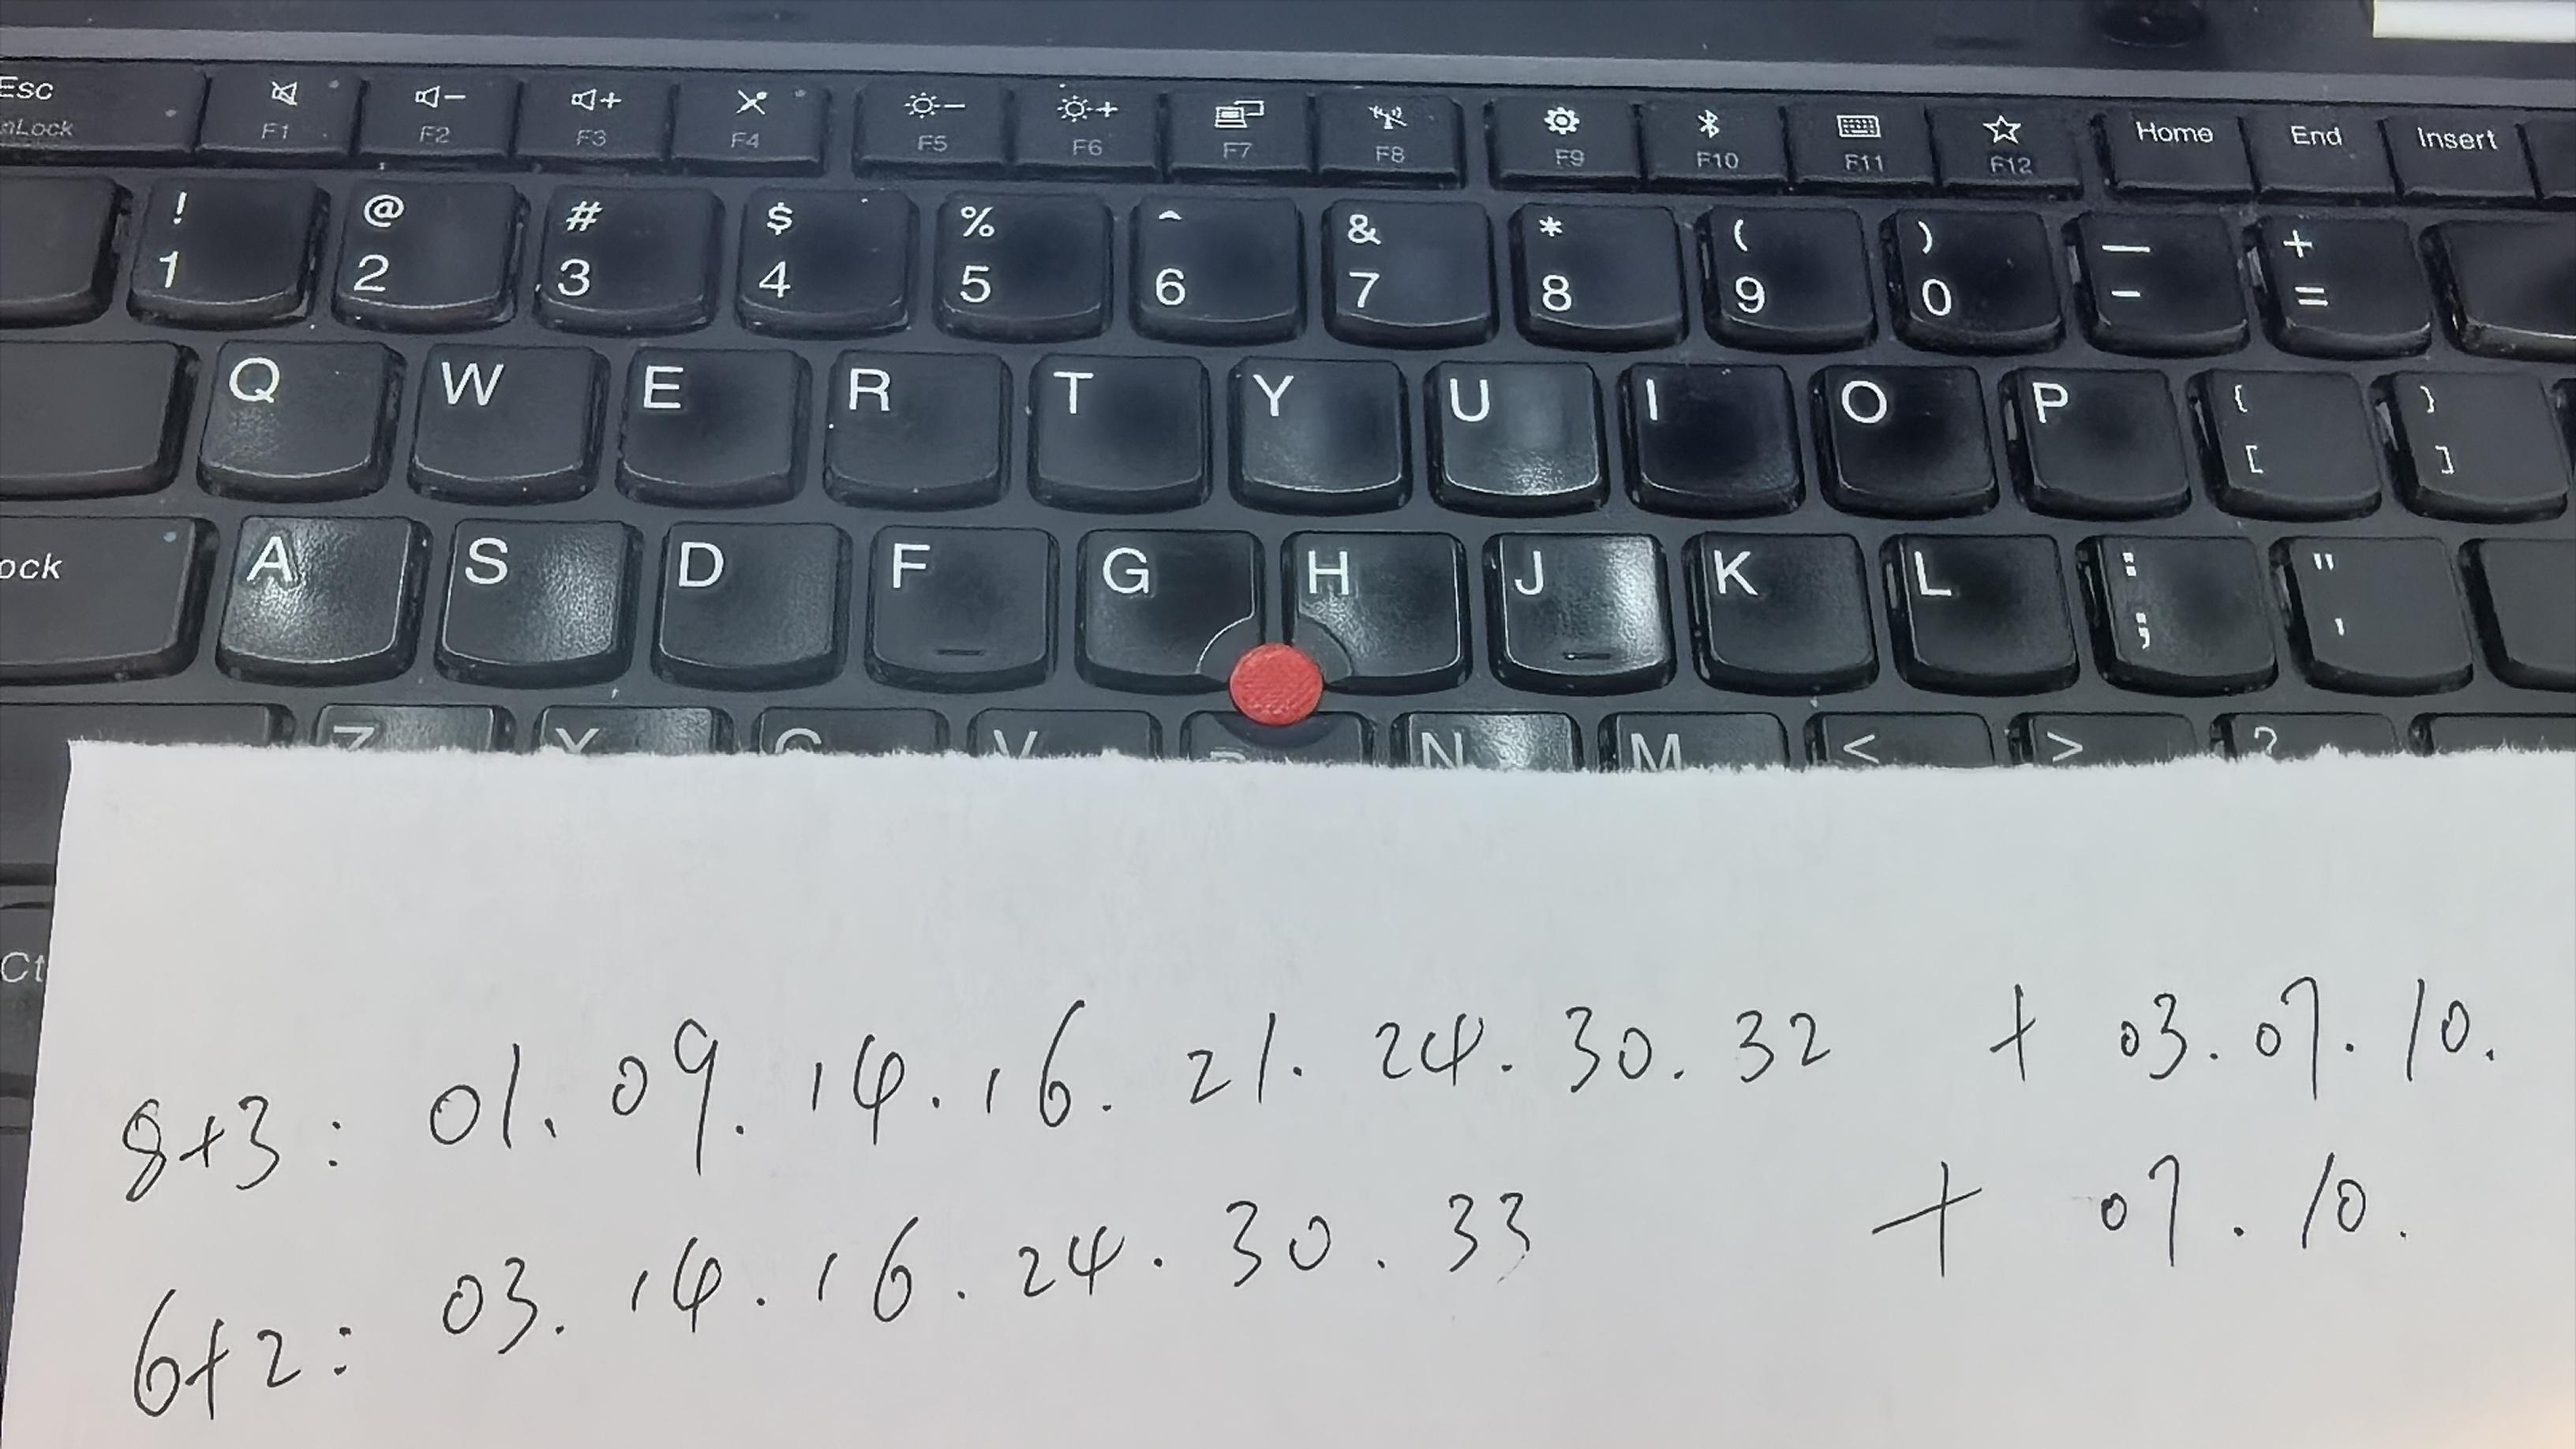 Esc F1 F2 F3 F4 F5 F6 F7 F8 F9 F10 F11 F12 Home End Insert
nLock
! @ # $ % ^ & * ( ) — +
1 2 3 4 5 6 7 8 9 0 - =
Q W E R T Y U I O P { }
[ ]
A S D F G H J K L : "
ock ; '
Z X C V B N M < > ?
Ct
8+3: 01. 09. 14. 16. 21. 24. 30. 32 + 03. 07. 10.
6+2: 03. 14. 16. 24. 30. 33 + 07. 10.